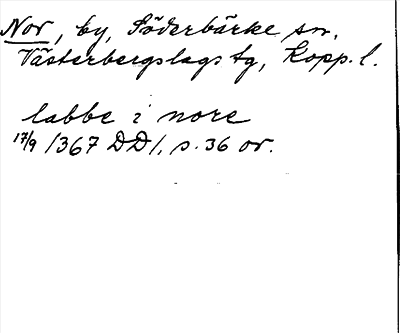 Nor, by, Söderbärke sn,
Västerbergslags tg, Kopp. l.
labbe i nore
17/9 1367 DD1, s. 36 or.